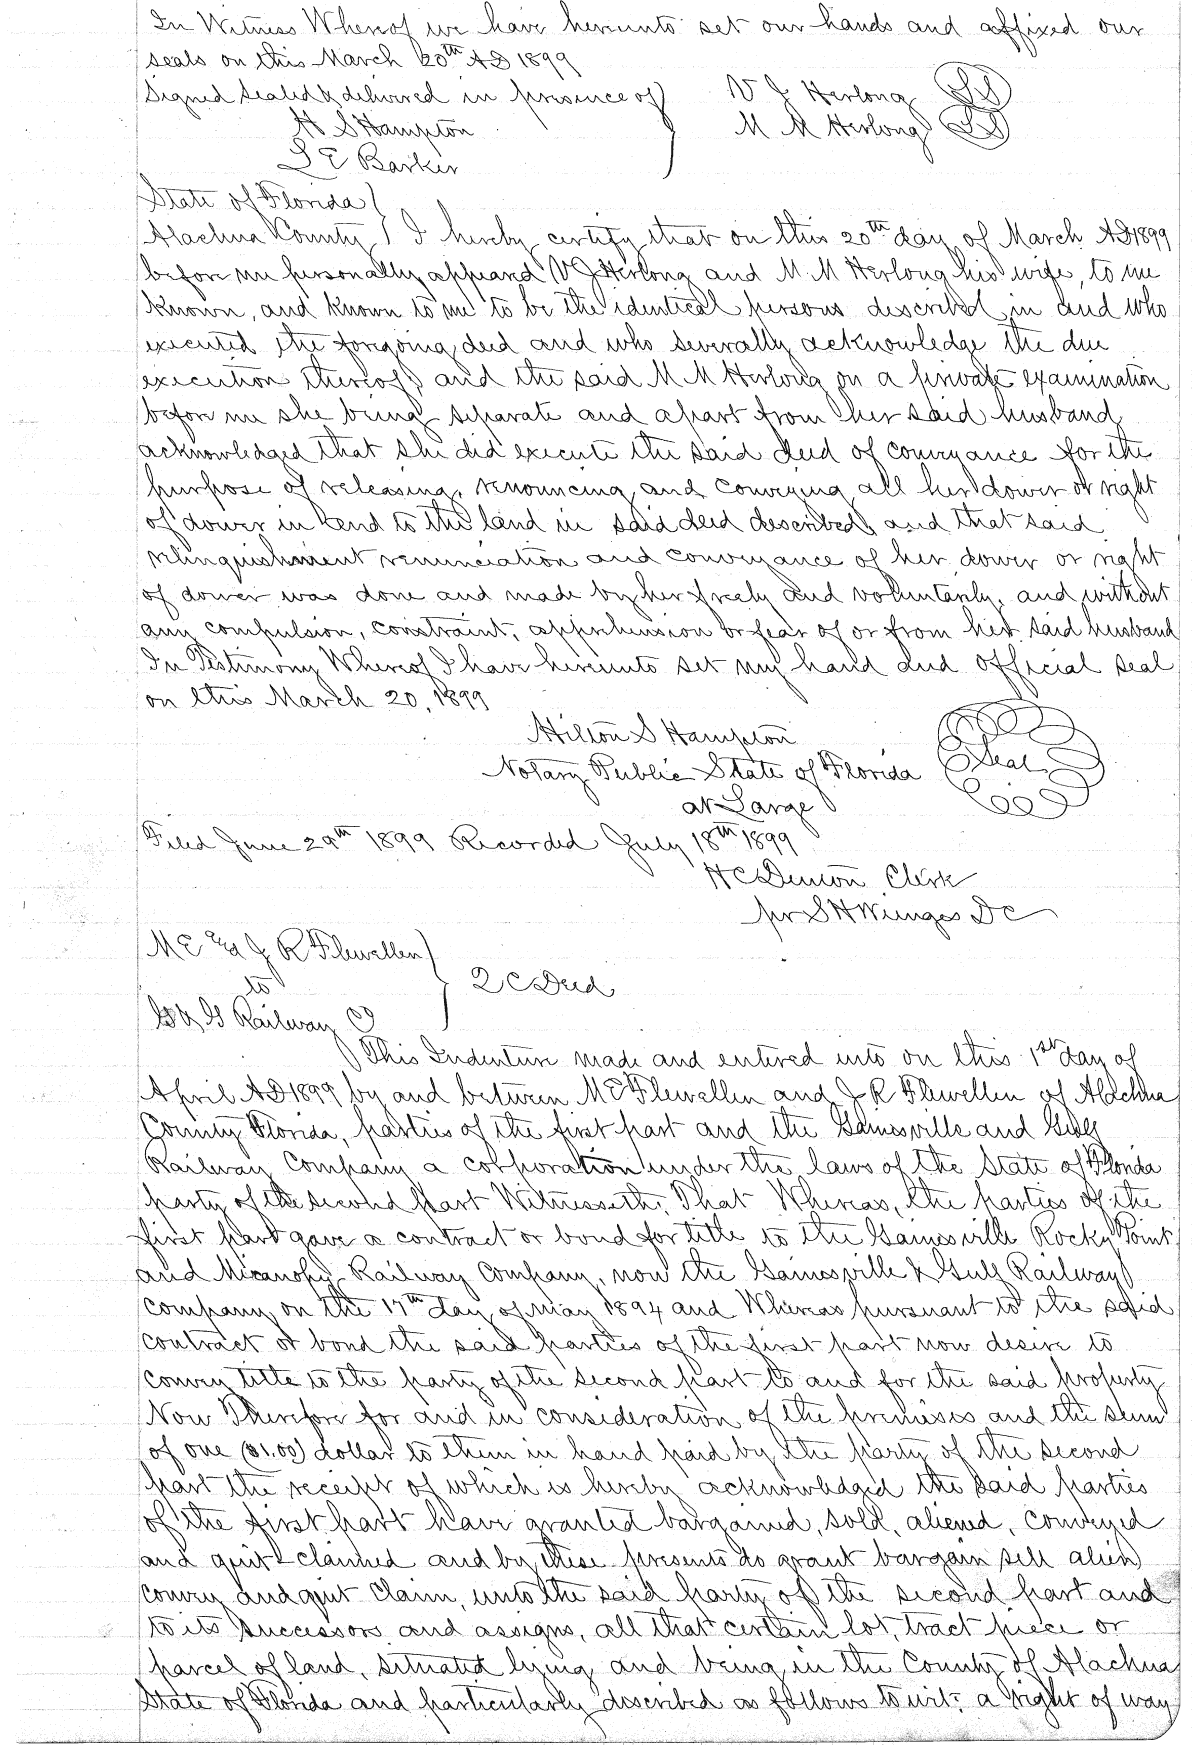 In Witness Whereof we have hereunto set our hands and affixed our
seals on this March 20th AD 1899
Signed Sealed & delivered in presence of
V J Herlong LS
H S Hampton
M M Herlong LS
L E Barker
State of Florida
Alachua County I hereby certify that on this 20th day of March AD 1899
before me personally appeard V J Herlong and M. M Herlong his wife, to me
known, and known to me to be the identical persons described in and who
executed the foregoing deed and who severally acknowledge the due
execution thereof, and the said M M Herlong on a private examination
before me she being separate and apart from her said husband
acknowledged that she did execute the said deed of conveyance for the
purpose of releasing, renouncing and conveying all her dower or right
of dower in and to the land in said deed described and that said
relinquishment renunciation and conveyance of her dower or right
of dower was done and made by her freely and voluntarily, and without
any compulsion, constraint, apprehension or fear of or from her said husband
In Testimony Whereof I have hereunto set my hand and official seal
on this March 20, 1899
Hilton S Hampton
Notary Public State of Florida
at Large
Seal
Filed June 29th 1899 Recorded July 18th 1899
H C Denton Clerk
pr S H Wienges DC
M E and J R Flewellen
to
Q C Deed
G & G Railway Co
This Indenture made and entered into on this 1st day of
April AD 1899 by and between M E Flewellen and J R Flewellen of Alachua
County Florida, parties of the first part and the Gainesville and Gulf
Railway Company a corporation under the laws of the State of Florida
party of the second part Witnesseth, That Whereas, the parties of the
first part gave a contract or bond for title to the Gainesville Rocky Point
and Micanopy Railway Company, now the Gainesville & Gulf Railway
Company on the 17th day of May 1894 and Whereas pursuant to the said
contract or bond the said parties of the first part now desire to
convey title to the party of the second part to and for the said property
Now Therefore for and in consideration of the premises and the sum
of one ($1.00) dollar to them in hand paid by the party of the second
part the receipt of which is hereby acknowledged the said parties
of the first part have granted bargained, sold, aliened, conveyed
and quit-claimed and by these presents do grant bargain sell alien
convey and quit claim, unto the said party of the second part and
to its successors and assigns, all that certain lot, tract piece or
parcel of land, situated lying and being in the County of Alachua
State of Florida and particularly described as follows to wit: a right of way